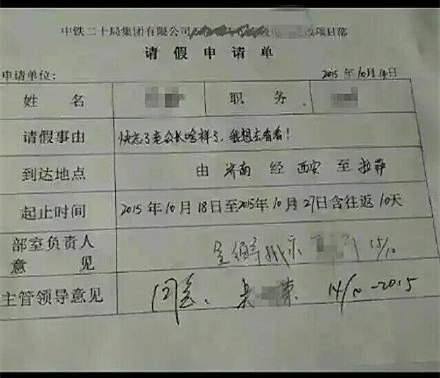 中铁二十局集团有限公司 项目部
请假申请单
申请单位: 2015年10月14日
姓名 职务
请假事由 快忘了老公长啥样了,我想去看看!
到达地点 由济南经西安至拉萨
起止时间 2015年10月18日至2015年10月27日含往返10天
部室负责人
意见 15/10
主管领导意见 同意. 14/10-2015